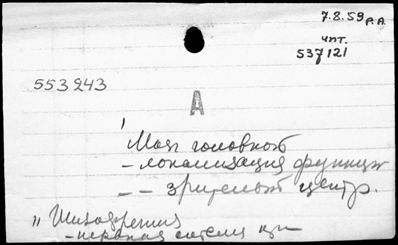 7.8.59 Р.А.
чпт.
537121
553243
A
Мозг головной
- локализация функций
- - зрительный центр.
" Шизофрения
- нервная система при